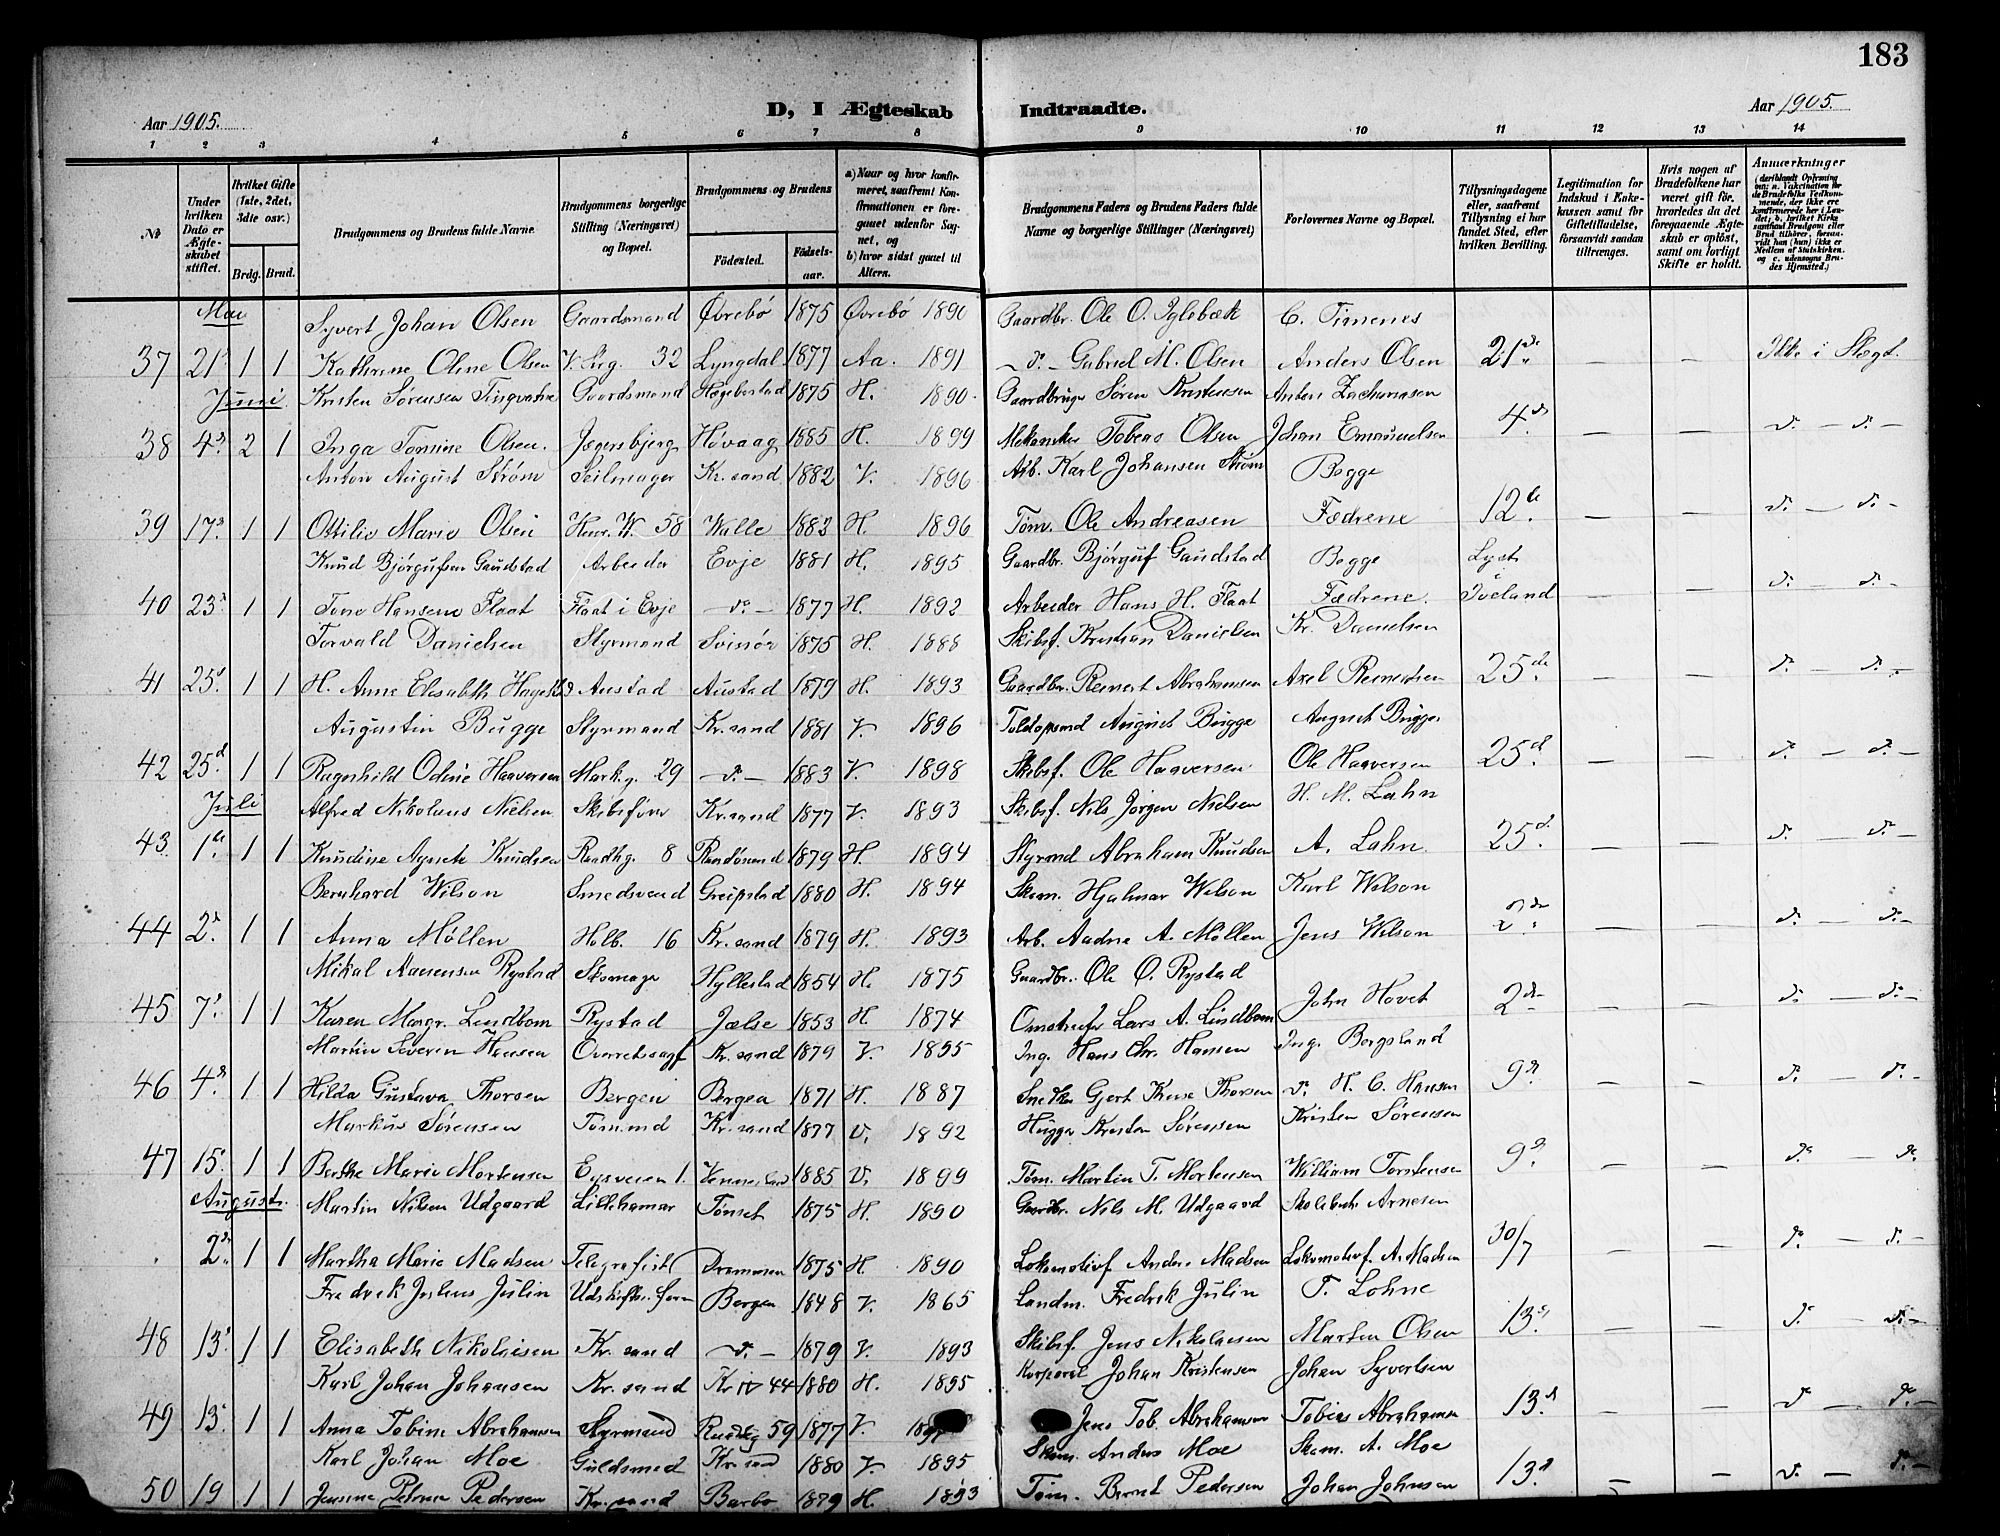 183
D, I Ægteskab Indtraadte.
Aar 1905. Aar 1905.
1 2 3 4 5 6 7 8 9 10 11 12 13 14
№
Under hvilken Dato er Ægteskabet stiftet.
Hvilket Gifte (1ste, 2det, 3die osv.)
Brdg. Brud.
Brudgommens og Brudens fulde Navne.
Brudgommens borgerlige Stilling (Næringsvei) og Bopæl.
Brudgommens og Brudens
Fødested. Fødselsaar.
a) Naar og hvor konfirmeret, saafremt Konfirmationen er foregaaet udenfor Sognet, og
b) hvor sidst gaaet til Alters.
Brudgommens Faders og Brudens Faders fulde Navne og borgerlige Stillinger (Næringsvei)
Forlovernes Navne og Bopæl.
Tillysningsdagene eller, saafremt Tillysning ei har fundet Sted, efter hvilken Bevilling.
Legitimation for Indskud i Enkekassen samt for Giftetilladelse, forsaavidt saadan tiltrænges.
Hvis nogen af Brudefolkene har været gift før, hvorledes da det foregaaende Ægteskab er opløst, samt om lovligt Skifte er holdt.
Anmærkninger
Mai Syvert Johan Olsen Gaardsmand Øvrebø 1875 Øvrebø 1890 Gaardbr. Ole O. Iglebæk C. Timenes
37 21 1 1 Kathrine Oline Olsen 32 Lyngdal 1877 Aa. 1891 d. Gabriel M. Olsen Anders Olsen 21 de — — Ikke i Slægt.
Juni Kristen Sørensen Tingvatne Gaardsmand Hægebostad 1875 H. 1890 Gaardbruger Søren Kristensen Anders Zachariasen
38 4 2 1 Inga Tomine Olsen. Jegersbjerg Høvaag 1885 H. 1899 Tobias Olsen Johan Emanuelsen 4 — — d. — d. —
Anton August Strøm Seilmager Kr.sand 1882 V. 1896 Arb. Karl Johansen Strøm Begge
39 17 1 1 Ottilie Marie Olsen Henr. W. 58 Walle 1883 H. 1896 Tøm. Ole Andreasen Fædrene 12 — — d. — d.
Knud Bjørgufsen Gaudstad Arbeider Evje 1881 H. 1895 Gaardbr. Bjørguf Gaudstad Begge Lyst
40 23 1 1 Tone Hansen Flaat Flaat i Evje d. 1877 H. 1892 Arbeider Hans H. Flaat Fædrene. Iveland — — d. — d. —
Torvald Danielsen Styrmand Svinør 1875 H. 1888 Skibsf. Kristian Danielsen Kr. Danielsen
41 25 1 1 H. Anne Elisabeth Austad Austad 1879 H. 1893 Gaardbr. Reinert Abrahamsen Axel Reinertsen 25 de — — d. — d. —
Augustin Bugge Styrmand Kr.sand 1881 V. 1896 August Bugge August Bugge
42 25 1 1 Ragnhild Odine Haaversen Markg. 29 d. 1883 V. 1898 Skibsf. Ole Haaversen Ole Haaversen 25 d — — d. — d. —
Juli Alfred Nikolaus Nielsen Skibsfører Kr.sand 1877 V. 1893 Skibsf. Nils Jørgen Nielsen H. M. Lahn
43 1 1 1 Knudine Agnete Knudsen 8 Randøsund 1879 H. 1894 Styrmd Abraham Knudsen A. Lahn 25 d — — d. — d. —
Bernhard Wilson Smedsvend Greipstad 1880 H. 1894 Skom. Hjalmar Wilson Karl Wilson
44 2 1 1 Anna Møllen Holb. 16 Kr.sand 1879 H. 1893 Arb. Aadne A. Møllen Jens Wilson 2 — — d. — d. —
Mikal Aanensen Rystad Skomager Hyllestad 1854 H. 1875 Gaardbr. Ole O. Rystad
45 7 1 1 Karen Margr. Lindbom Rystad Jælse 1853 H. 1874 Lars A. Lindbom John Hovet 2 — — d. — d. —
Martin Severin Hansen Kr.sand 1879 V. 1895 Ing. Hans Chr. Hansen Ing. Borgsland
46 4 1 1 Hilda Gustava Thorsen Bergen Bergen 1871 H. 1887 Gjert Thorsen d. H. C. Hansen 9 — — d. — d. —
Markus Sørensen Tømmd Kr.sand 1877 V. 1892 Kristen Sørensen Kristen Sørensen
47 15 1 1 Berthe Marie Mortensen 1. 1885 V. 1899 Tøm. Martin T. Mortensen William Torstensen 9 — — d. — d.
August. Martin Nilsen Udgaard Lillehamar Tønset 1875 H. 1890 Gaardbr. Nils M. Udgaard Arnesen
2 1 1 Martha Marie Madsen Telegrafist Drammen 1875 H. 1890 Lokomotivf. Anders Madsen Lokomotivf. A. Madsen 30/7 — — d. — d. —
Fredrik Julius Julin Bergen 1848 V. 1865 Landm. Fredrik Julin T. Lohne
48 13 1 1 Elisabeth Nikolaisen Kr.sand d. 1879 V. 1893 Skibsf. Jens Nikolaisen Marten Olsen 13 — — d. d. —
Karl Johan Johansen Kr.sand 44 1880 H. 1895 Korporal Johan Kristensen Johan Syvertsen
49 13 1 1 Anna Tobine Abrahamsen Styrmand 59 1877 V. Jens Tob. Abrahamsen Tobias Abrahamsen 13 — — d. — d.
Karl Johan Moe Guldsmed Kr.sand 1880 V. 1895 Skom. Anders Moe Skom. A. Moe
50 19 1 1 Pedersen Kr.sand Barbo 1879 H. 1893 Tøm. Bernt Pedersen Johan Johnsen 13 — — d. — d. —